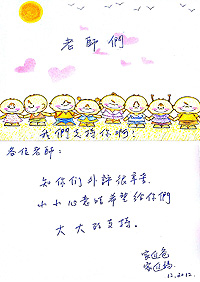 老師們
我們支持你啊!
各位老師:
知你们外評很辛苦
小小心意,希望給你們
大大的支持。
12.2012.